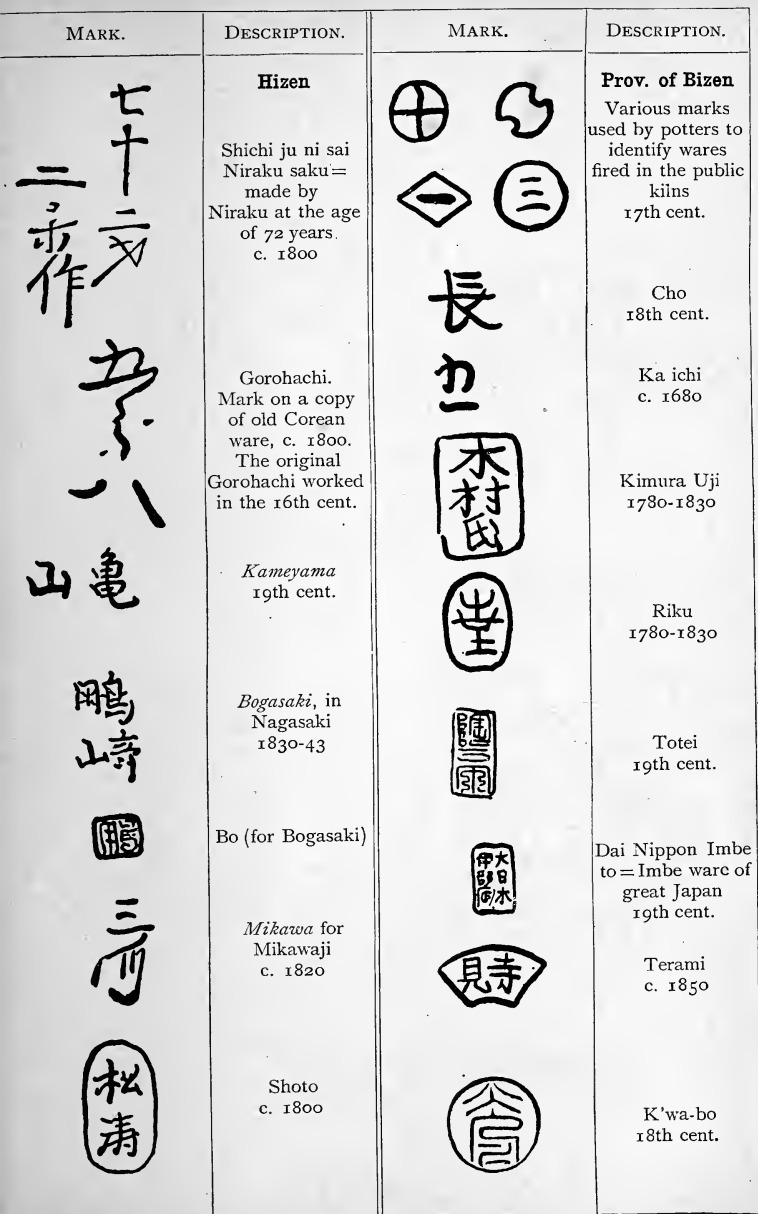 MARK. DESCRIPTION. MARK. DESCRIPTION.
Hizen
七十二
二
作
Shichi ju ni sai
Niraku saku =
made by
Niraku at the age
of 72 years.
c. 1800
五郎八
Gorohachi.
Mark on a copy
of old Corean
ware, c. 1800.
The original
Gorohachi worked
in the 16th cent.
亀
山
Kameyama
19th cent.
鵬
崎
Bogasaki, in
Nagasaki
1830-43
鵬
Bo (for Bogasaki)
三河
Mikawa for
Mikawaji
c. 1820
松涛
Shoto
c. 1800
Prov. of Bizen
一
三
Various marks
used by potters to
identify wares
fired in the public
kilns
17th cent.
長
Cho
18th cent.
カ一
Ka ichi
c. 1680
木村氏
Kimura Uji
1780-1830
Riku
1780-1830
Totei
19th cent.
大日本
伊部
Dai Nippon Imbe
to = Imbe ware of
great Japan
19th cent.
寺見
Terami
c. 1850
K'wa-bo
18th cent.